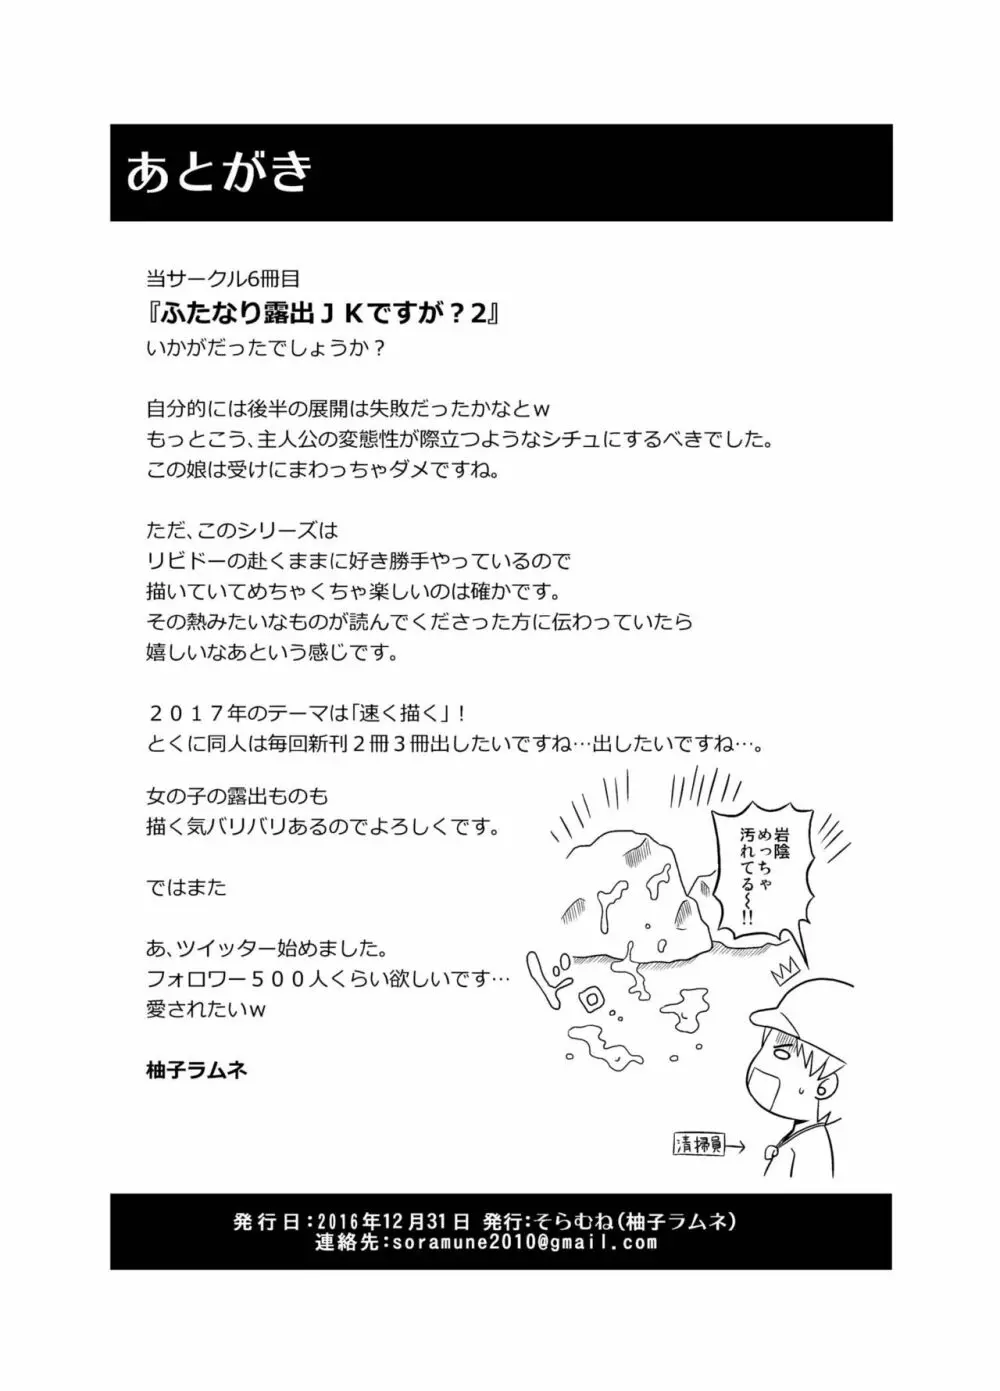 あとがき
当サークル6冊目
『ふたなり露出ＪＫですが？2』
いかがだったでしょうか？
自分的には後半の展開は失敗だったかなとｗ
もっとこう、主人公の変態性が際立つようなシチュにするべきでした。
この娘は受けにまわっちゃダメですね。
ただ、このシリーズは
リビドーの赴くままに好き勝手やっているので
描いていてめちゃくちゃ楽しいのは確かです。
その熱みたいなものが読んでくださった方に伝わっていたら
嬉しいなあという感じです。
２０１７年のテーマは「速く描く」！
とくに同人は毎回新刊２冊３冊出したいですね…出したいですね…。
女の子の露出ものも
描く気バリバリあるのでよろしくです。
ではまた
あ、ツイッター始めました。
フォロワー５００人くらい欲しいです…
愛されたいｗ
柚子ラムネ
岩陰
めっちゃ
汚れてる～!!
ドロ
清掃員→
発行日：2016年12月31日 発行：そらむね（柚子ラムネ）
連絡先：soramune2010@gmail.com